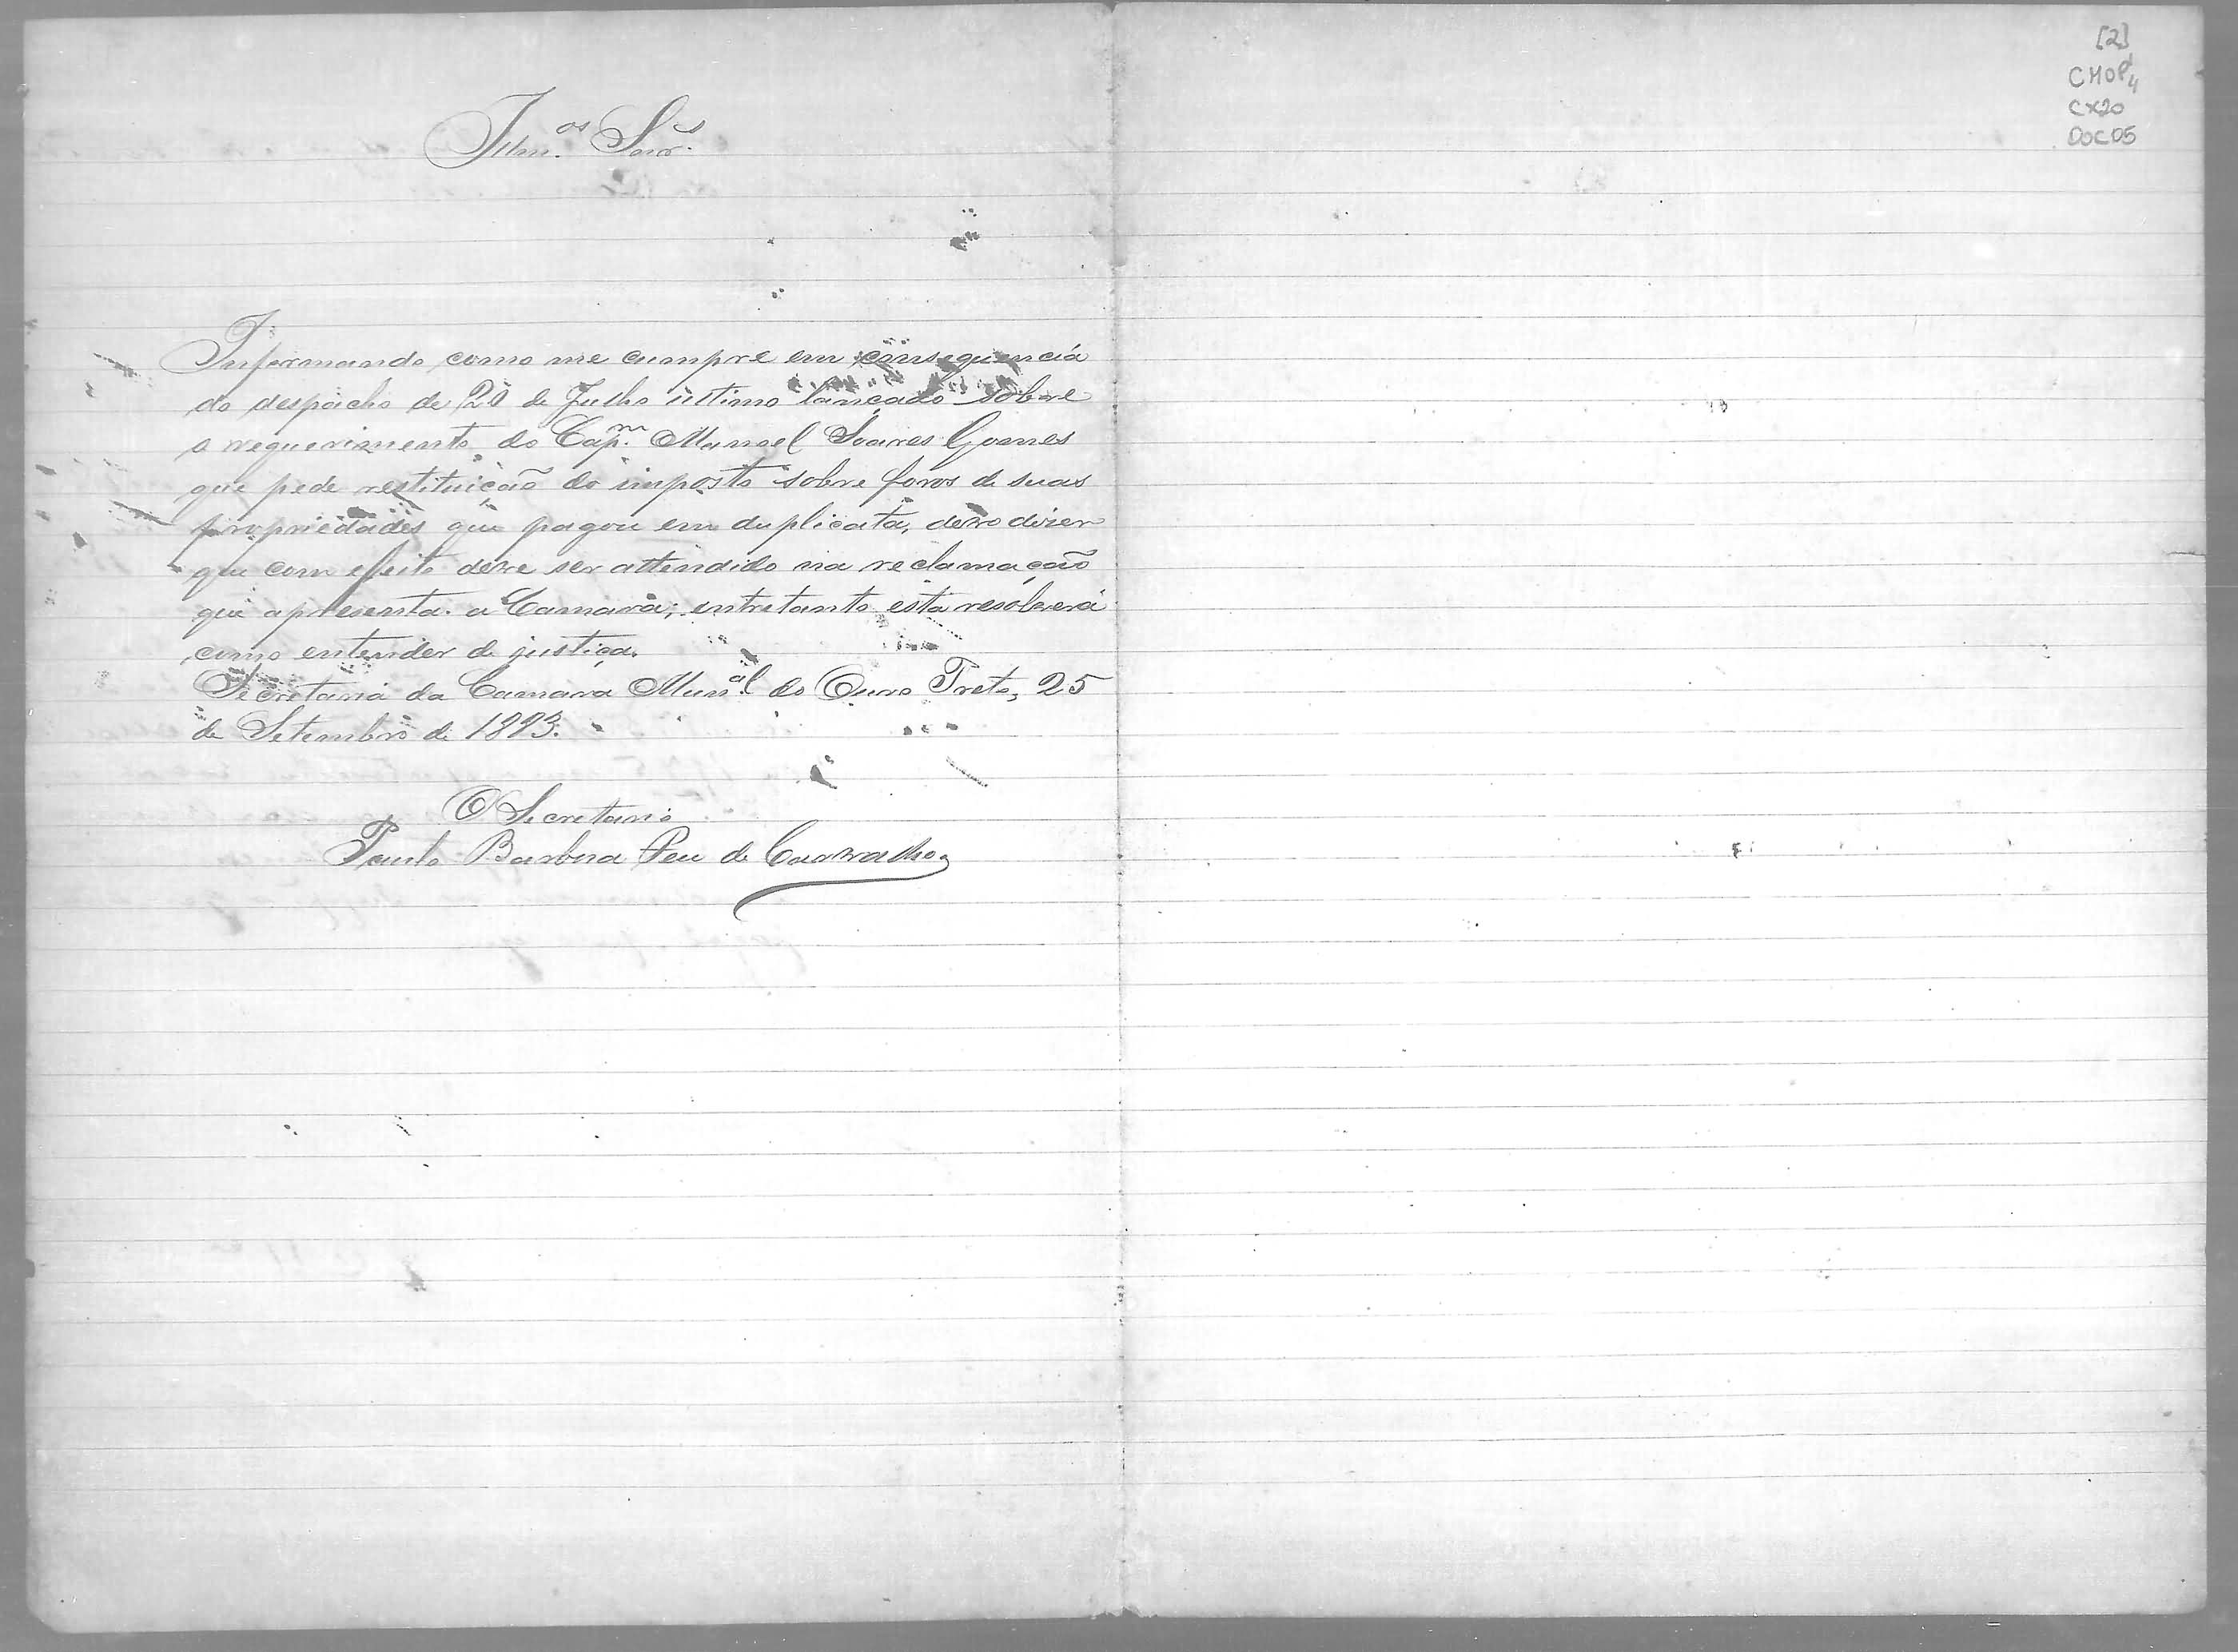 Illm.os Snrs.
Informando como me cumpre em consequencia
do despacho de 20 de Julho ultimo lançado sobre
o requerimento do Cap.m Manoel Soares Gomes
que pede restituição do imposto sobre foros de suas
propriedades que pagou em duplicata, devo dizer
que com effeito deve ser attendido na reclamação
que apresenta a Camara; entretanto esta resolverá
como entender de justiça.
Secretaria da Camara Mun.al do Ouro Preto, 25
de Setembro de 1893.
O Secretario
Paulo Barbosa de Carvalho
[2]
CMOP
CX20
DOC05